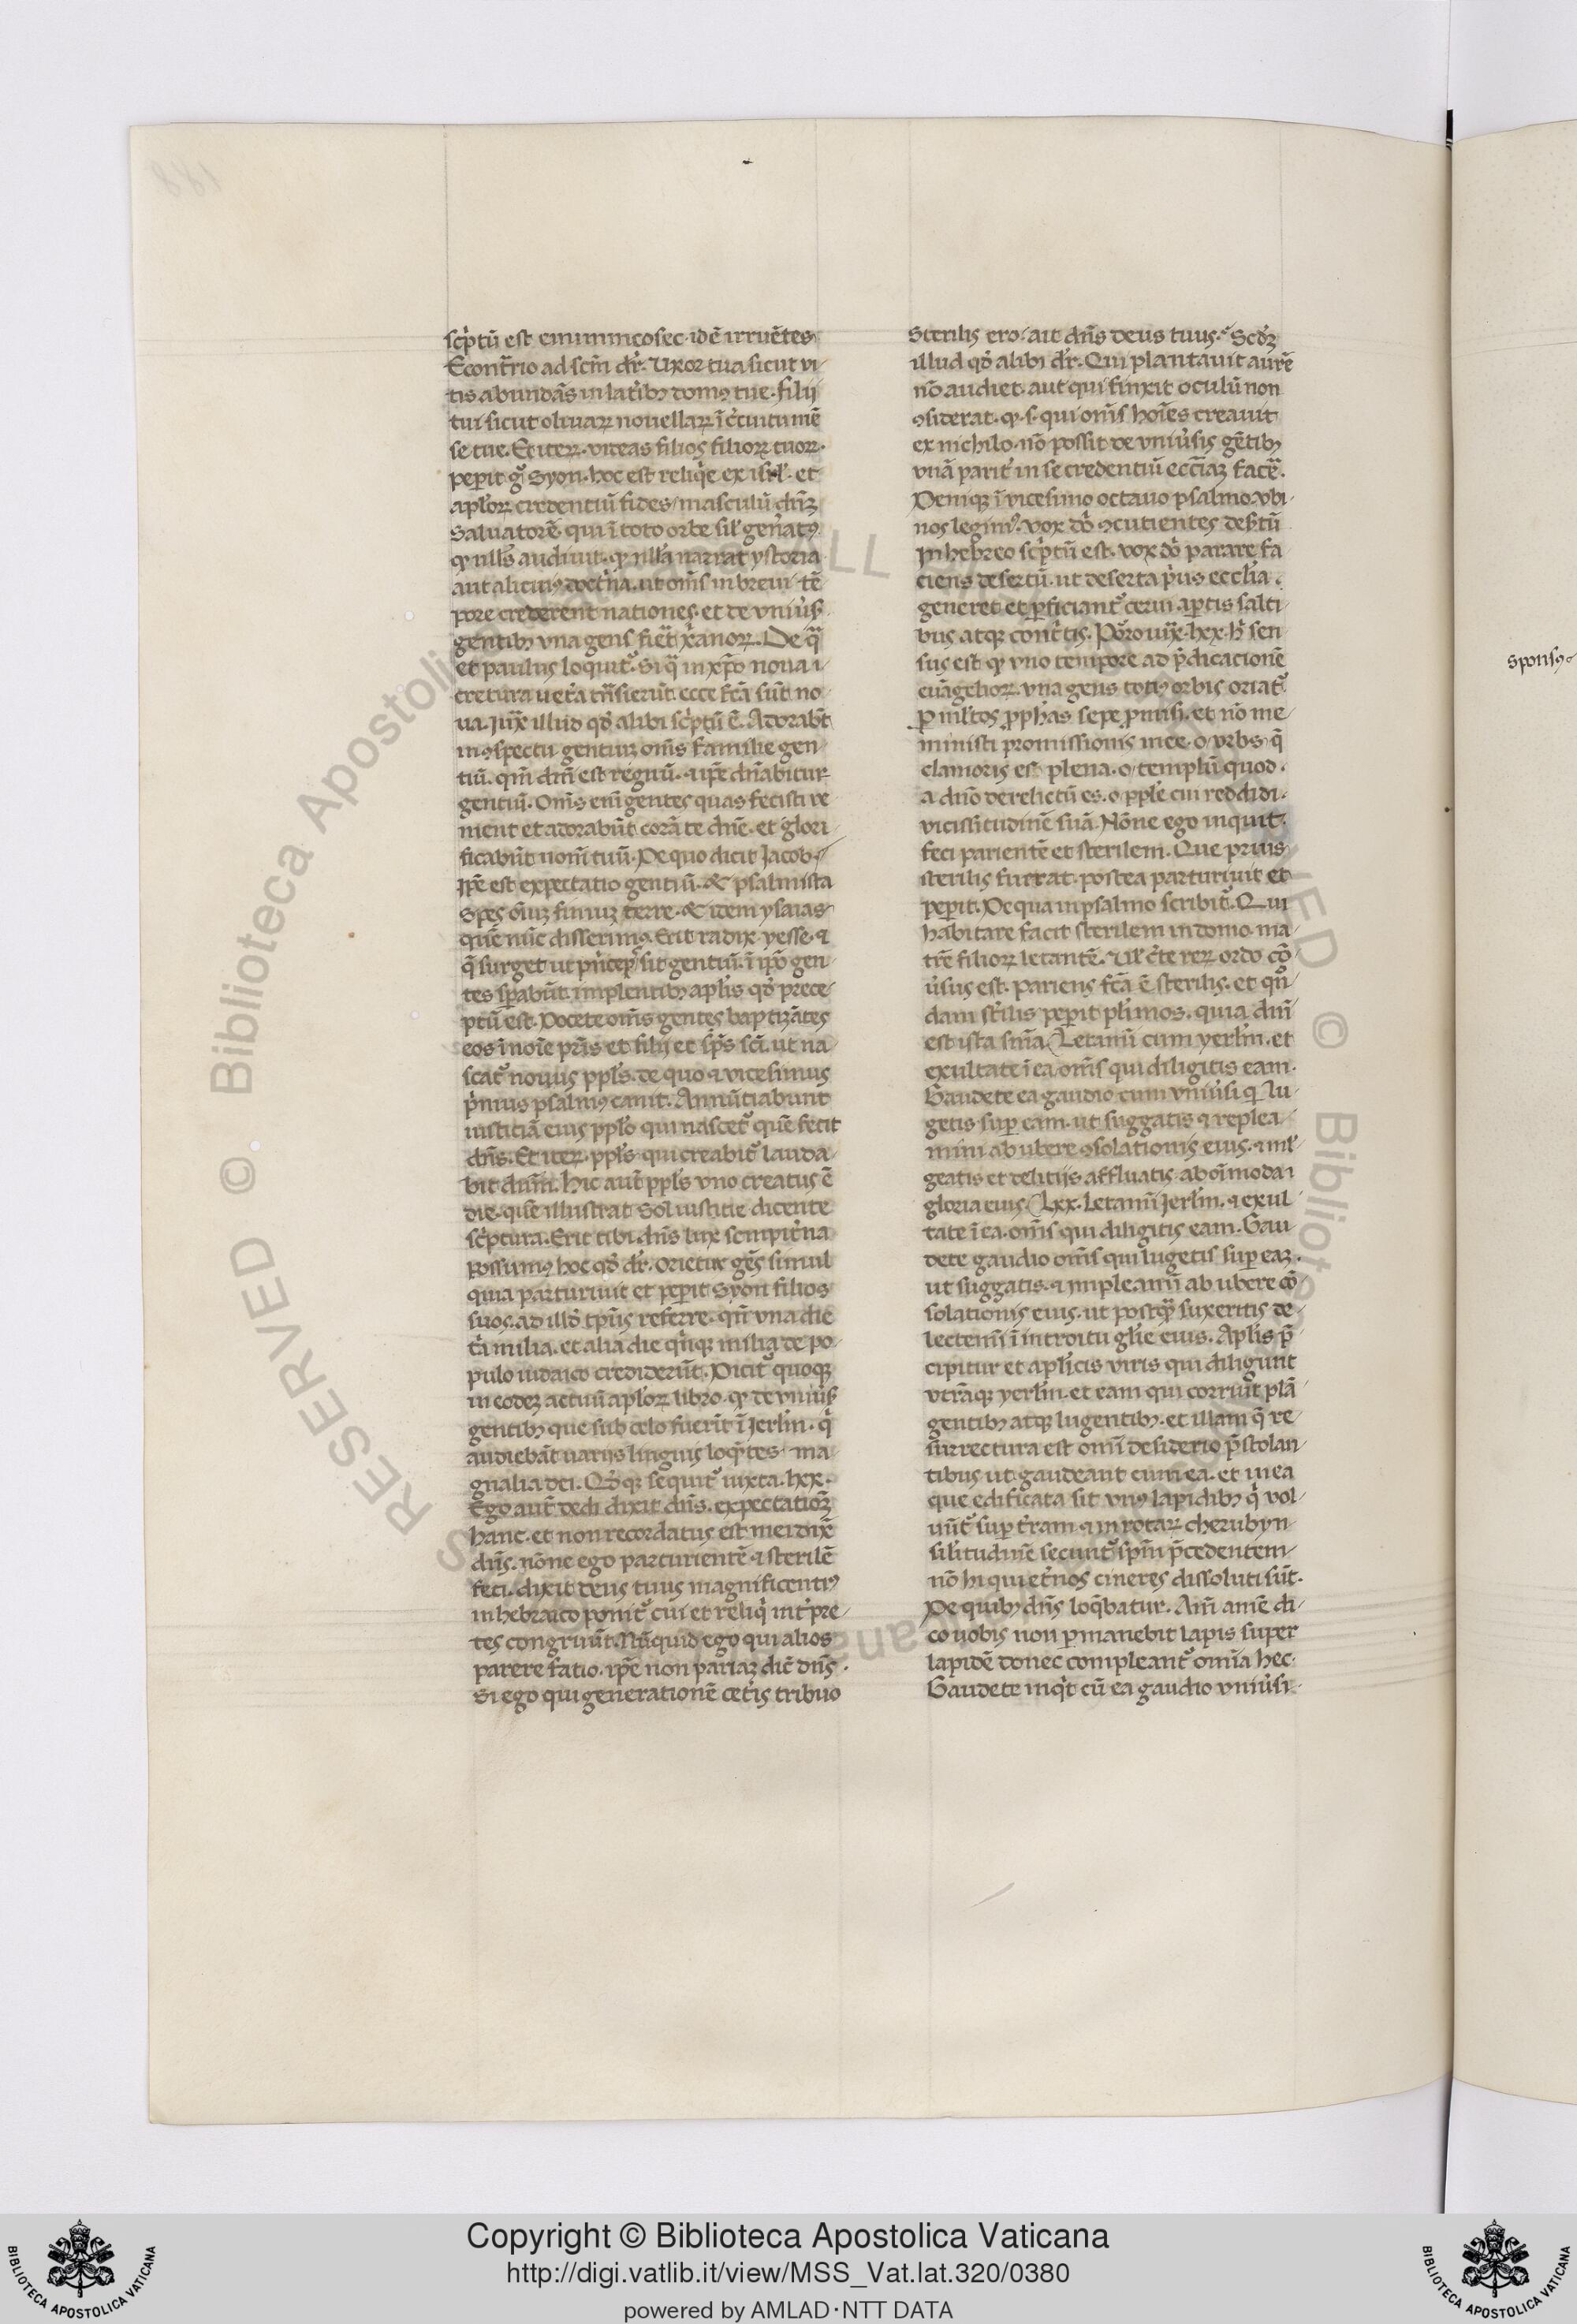 scͥptū est emunincosec. idē irruētes
Econtͬrio ad scm̄ dr̄. Uxor tua sicut vi
tis abundās in laterib domꝰ tue. filij
tui sicut oliuaꝝ nouellaꝝ ī cͥcuitu mē
se tue. Et iteꝝ. videas filios filioꝝ tuoꝝ.
peperit gͦ Syon. hoc est reliqͥe ex isrl̓. et
apl̓oꝝ credentiū fides masculū dn̄ꝫ
Saluatorē. qui ī toto orbe sil̓ gen̓atꝰ
ꝙ nll̓s audiuit. ꝙ nll̓a narrat ystoria
aut alicuiꝰ doctͥna. ut om̄s in breui tē
pore crederent nationes. et de vniu̓s
gentibꝫ vna gens fiet xp̄anoꝝ. De qͣ
et paulus loquitᷣ. Si qͣ in xp̄o noua
cretura uet̓a trͣnsierūt. ecce fc̄a sūt no
ua. Iuxͣ illud qd̓ alibi scͥptū ē. Adorabūt
in ꝯspectu gentiuꝫ om̄s familie gen
tiū. qm̄ dn̄i est regnū. ⁊ ip̄e dn̄abitur
gentiū. Om̄s em̄ gentes quas fecisti ve
nient et adorabūt corā te dn̄e. et glori
ficabūt nom̄ tuū. De quo dicit Jacob.
Ip̄e est expectatio gentiū. & psalmista
Spes om̄iuꝫ finiuꝫ terre. & idem ysaias
quē nūc disserimꝰ. Erit radix yesse. ⁊
qͥ surget ut pͥnceps sit gentiū. ī ipō gen
tes sꝑabūt. implentibꝫ apl̓is qd̓ prece
ptū est. Docete om̄s gentes baptizātes
eos ī noīe pr̄is et filij et sp̄s sc̄i. ut na
scatᷣ nouus ppl̓s. de quo ⁊ vicesimus
pͥmus psalmꝰ canit. Annūtiabunt
iusticiā eius ppl̓o qui nascetᷣ quē fecit
dn̄s. Et iteꝝ. ppl̓s qui creabitᷣ lauda
bit dn̄m. Hic aūt ppl̓s vno creatus ē
die. quē illustrat Sol iustitie dicente
scͥptura. Erit tibi dn̄s lux sempit̓na
possumꝰ hoc qd̓ dr̄. orietur gēs simul
quia parturiuit et peperit Syon filios
suos. ad illd̓ tp̄us referre. qn̄ vna die
tͥa milia. et alia die qͥnqꝫ milia de po
pulo iudaico crediderūt. Dicitᷣ quoqꝫ
in eodeꝫ actuū apl̓oꝝ libro. ꝙ de vniu̓s
gentibꝫ que sub celo fuerūt ī Jerl̓m. qͥ
audiebāt uarijs linguis loqͣntes ma
gnalia dei. Qd̓qꝫ sequitᷣ iuxta. lxx.
Ego aūt dedi dixit dn̄s. expectatioēꝫ
hanc. et non recordatus est mei dixit
dn̄s. nōne ego parturientē ⁊ sterilē
feci. dixit deus tuus magnificentiꝰ
in hebraico ponitᷣ cui et reliqͥ int̓pre
tes congruūt. Nūquid ego qui alios
parere facio. ip̄e non pariaꝫ dic̄ dn̄s.
Si ego qui generationē cet̓is tribuo
Sterilis ero. ait dn̄s deus tuus. Scd̓ꝫ
illud qd̓ alibi dr̄. Qui plantauit aurē
nō audiet. aut qui finxit oculū non
ꝯsiderat. ꝙ .s. qui om̄s hoīes creauit
ex nichilo. nō possit de vniu̓sis gētibꝫ
vnā parit̓ in se credentiū ecc̄iaꝫ facͤe.
Deniqꝫ ī vicesimo octauo psalmo. vbi
nos legimꝰ. vox dn̄i ꝯcutientes des̓tū
In hebreo scͥptū est. vox dn̄i parare fa
ciens desertū. ut deserta pͥus eccl̓ia
generet et ꝑficiantᷣ cerui aꝑtis salti
bus atqꝫ conct̓is. Porro iuxͣ. lxx. hͥ sen
sus est ꝙ vno tempore ad p̄dicacionē
euāgelioꝝ. vna gens totiꝰ orbis oriatᷣ.
ꝑ ml̓tos ꝓph̓as sepe ꝓmisi. et nō me
ministi promissionis mee. o vrbs q̄
clamoris es plena. o templū quod
a dn̄o derelictū es. o ppl̓e cui reddidi
vicissitudinē suā. Nōne ego inquit.
feci parientē et sterilem. Que prius
sterilis fuerat. postea parturiuit et
peperit. De qua in psalmo scribitᷣ. Qui
habitare facit sterilem in domo. ma
trē filioꝝ letantē. Ul̓ cͥte reꝝ ordo cō
u̓sus est. pariens fc̄a ē sterilis. et qn̄
dam stͥilis peperit pl̓imos. quia dn̄i
est ista sn̄ia. Letami cum yerl̓m. et
exultate ī ea om̄s qui diligitis eam.
Gaudete ea gaudio cum vniu̓si q̄ lu
getis suꝑ eam. ut suggatis ⁊ replea
mini ab ubere ꝯsolationis eius. ⁊ ml̓
geatis et delitijs affluatis ab oīmoda
gloria eius. Lxx. Letamī Jerl̓m. ⁊ exul
tate ī ea. om̄s qui diligitis eam. Gau
dete gaudio om̄s qui lugetis suꝑ eaꝫ.
ut suggatis. ⁊ impleamī ab ubere cō
solationis eius. ut postqͣ suxeritis de
lectemī ī introitu gl̓ie eius. Apl̓is p̄
cipitur et apl̓icis viris qui diligunt
vtrāqꝫ yerl̓m. et eam qui corruit plā
gentibꝫ atqꝫ lugentibꝫ. et illam q̄ re
surrectura est om̄i desiderio p̄stolan
tibus ut gaudeant cum ea. et in ea
que edificata sit viuis lapidibꝫ qͥ vol
uūtᷣ suꝑ t̓ram ⁊ in rotaꝝ cherubyn
sil̓itudinē secuntᷣ sp̄m p̄cedentem
nō hi qui et̓nos cineres dissoluti sūt.
De quibꝫ dn̄s loq̄batur. Am̄ amē di
co uobis non ꝑmanebit lapis super
lapidē donec compleantᷣ om̄ia hec.
Gaudete inqͥt cū ea gaudio vniu̓si
sponsꝰ
Copyright © Biblioteca Apostolica Vaticana
http://digi.vatlib.it/view/MSS_Vat.lat.320/0380
powered by AMLAD·NTT DATA